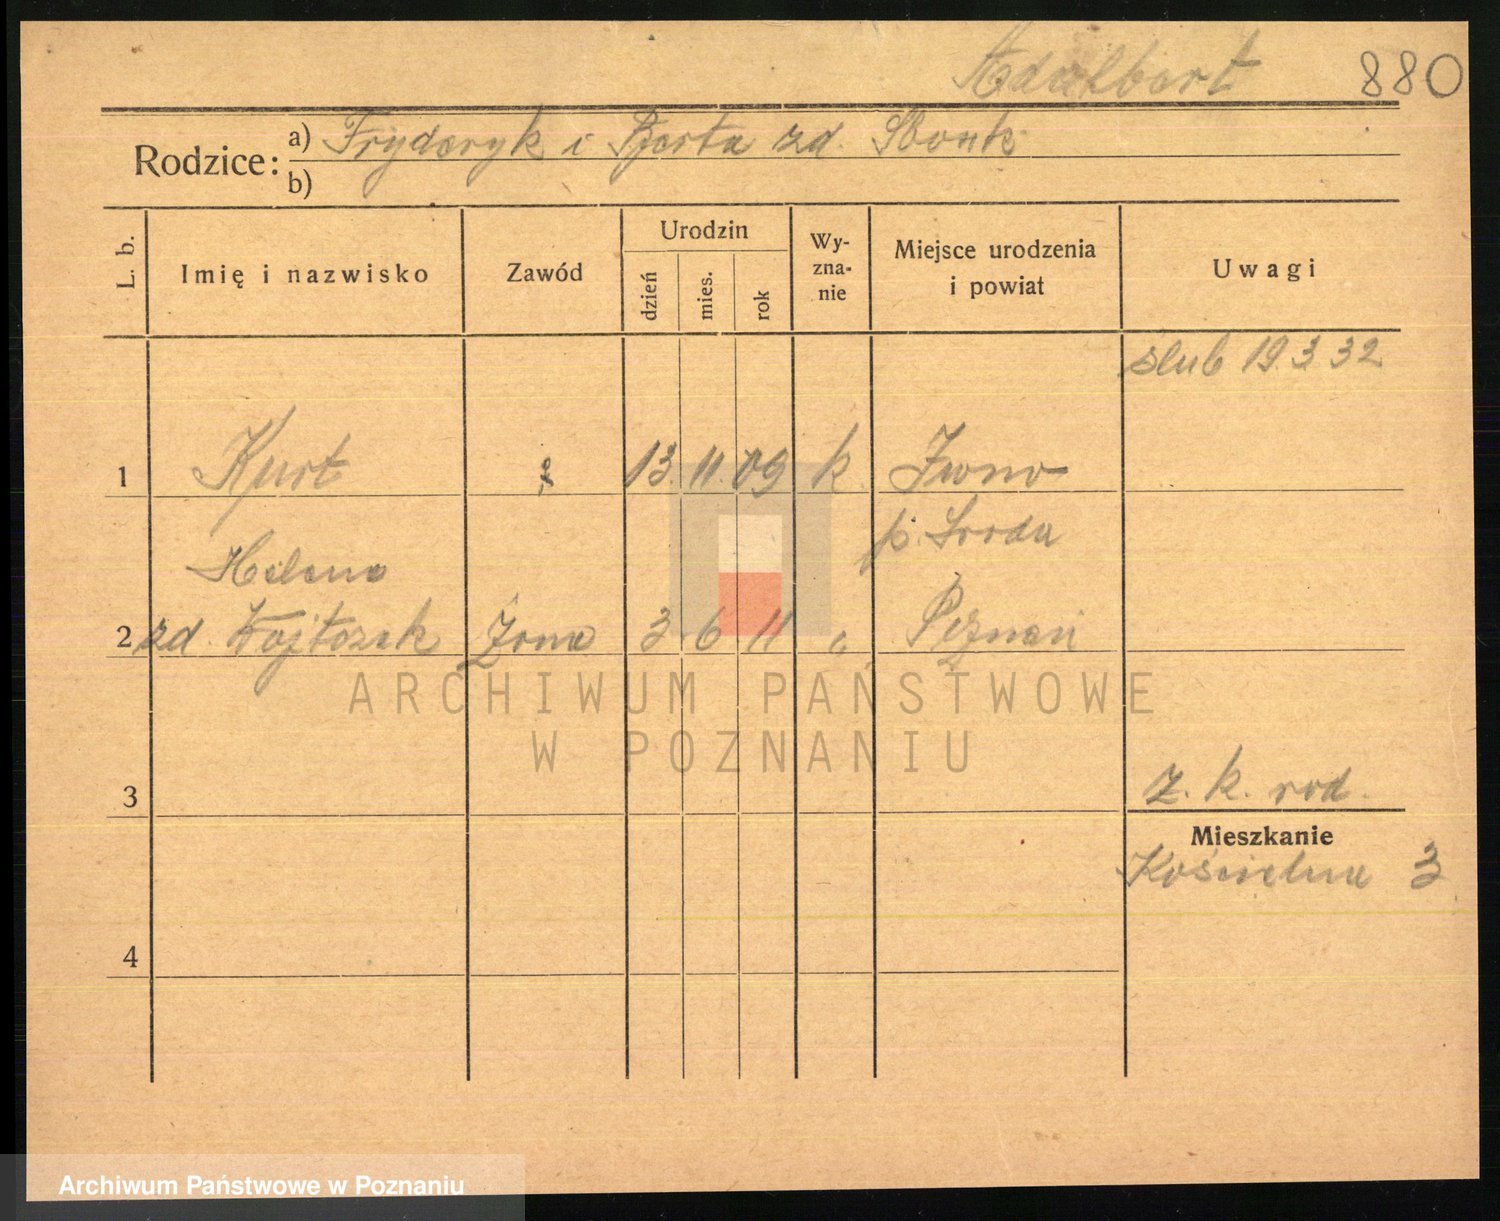 Adalbert 880
Rodzice: a) Fryderyk i Berta zd. Skonk
b)
L. b.
Imię i nazwisko
Zawód
Urodzin
dzień
mies.
rok
Wy-
zna-
nie
Miejsce urodzenia
i powiat
Uwagi
slub 19.3 32
1 Kurt 13. 11. 09 k Iwno
p. Środa
Helena
2 zd. Wojtczak Żona 3 6 11 " Poznań
ARCHIWUM PAŃSTWOWE
W POZNANIU
3 z. k. rod.
Mieszkanie
Kościelna 3
4
Archiwum Państwowe w Poznaniu